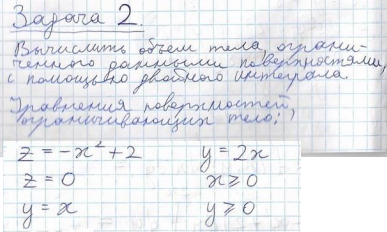 Задача 2.
Вычислить объем тела, ограни-
ченного данными поверхностями,
с помощью двойного интеграла.
Уравнения поверхностей,
ограничивающих тело:
z = -x² + 2
y = 2x
z = 0
x ≥ 0
y = x
y ≥ 0